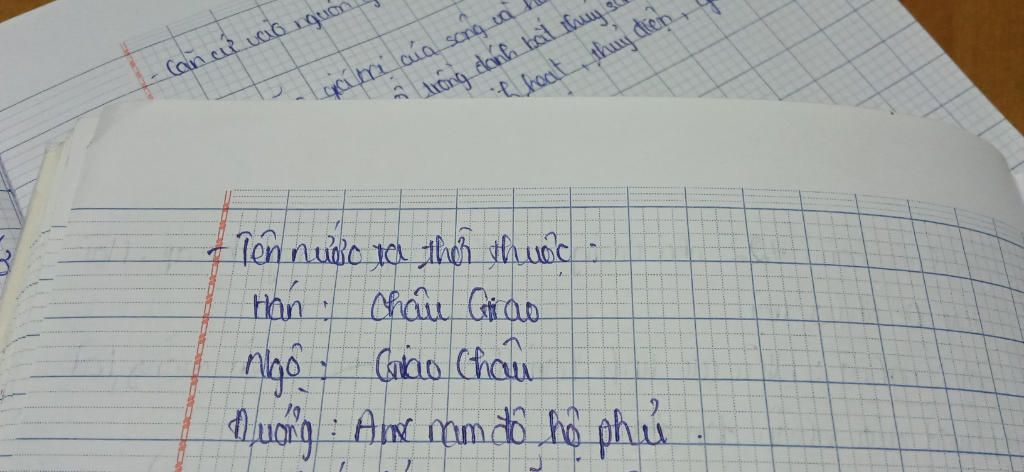 - Căn cứ vào nguồn
giá trị của sông và h
trồng đánh bắt thuỷ s
h hoạt, thuỷ điện,
+ Tên nước ta thời thuộc :
Hán : Châu Giao
Ngô : Giao Châu
Đường : An nam đô hộ phủ .